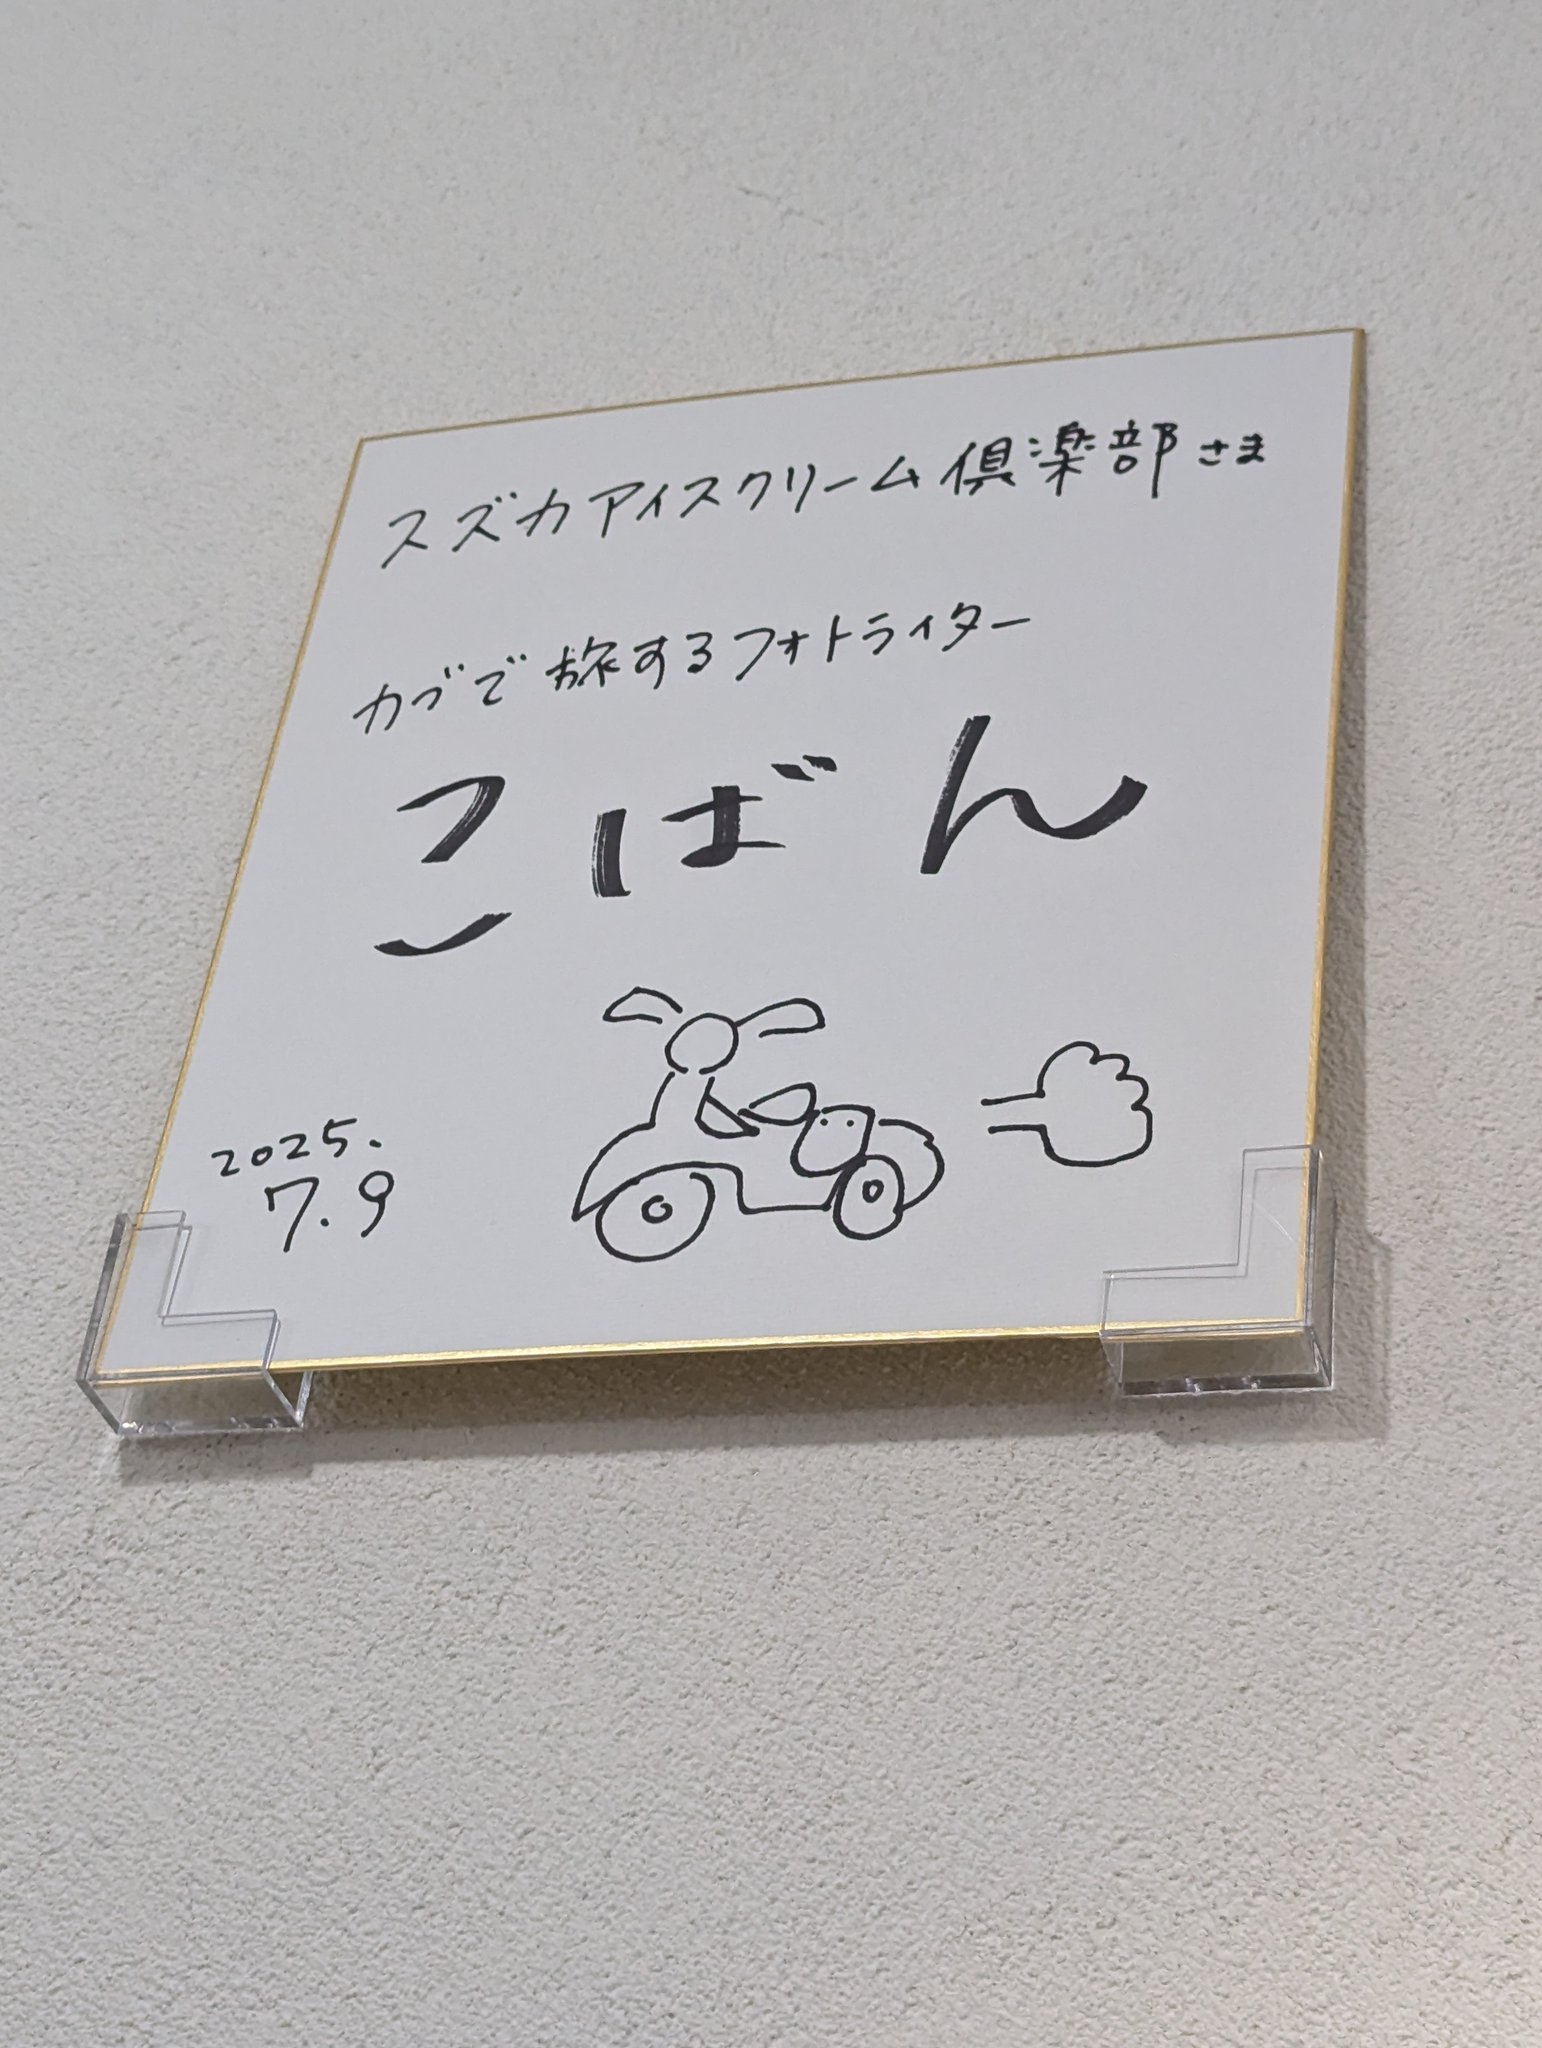 スズカアイスクリーム倶楽部さま
カブで旅するフォトライター
こばん
2025.
7.9